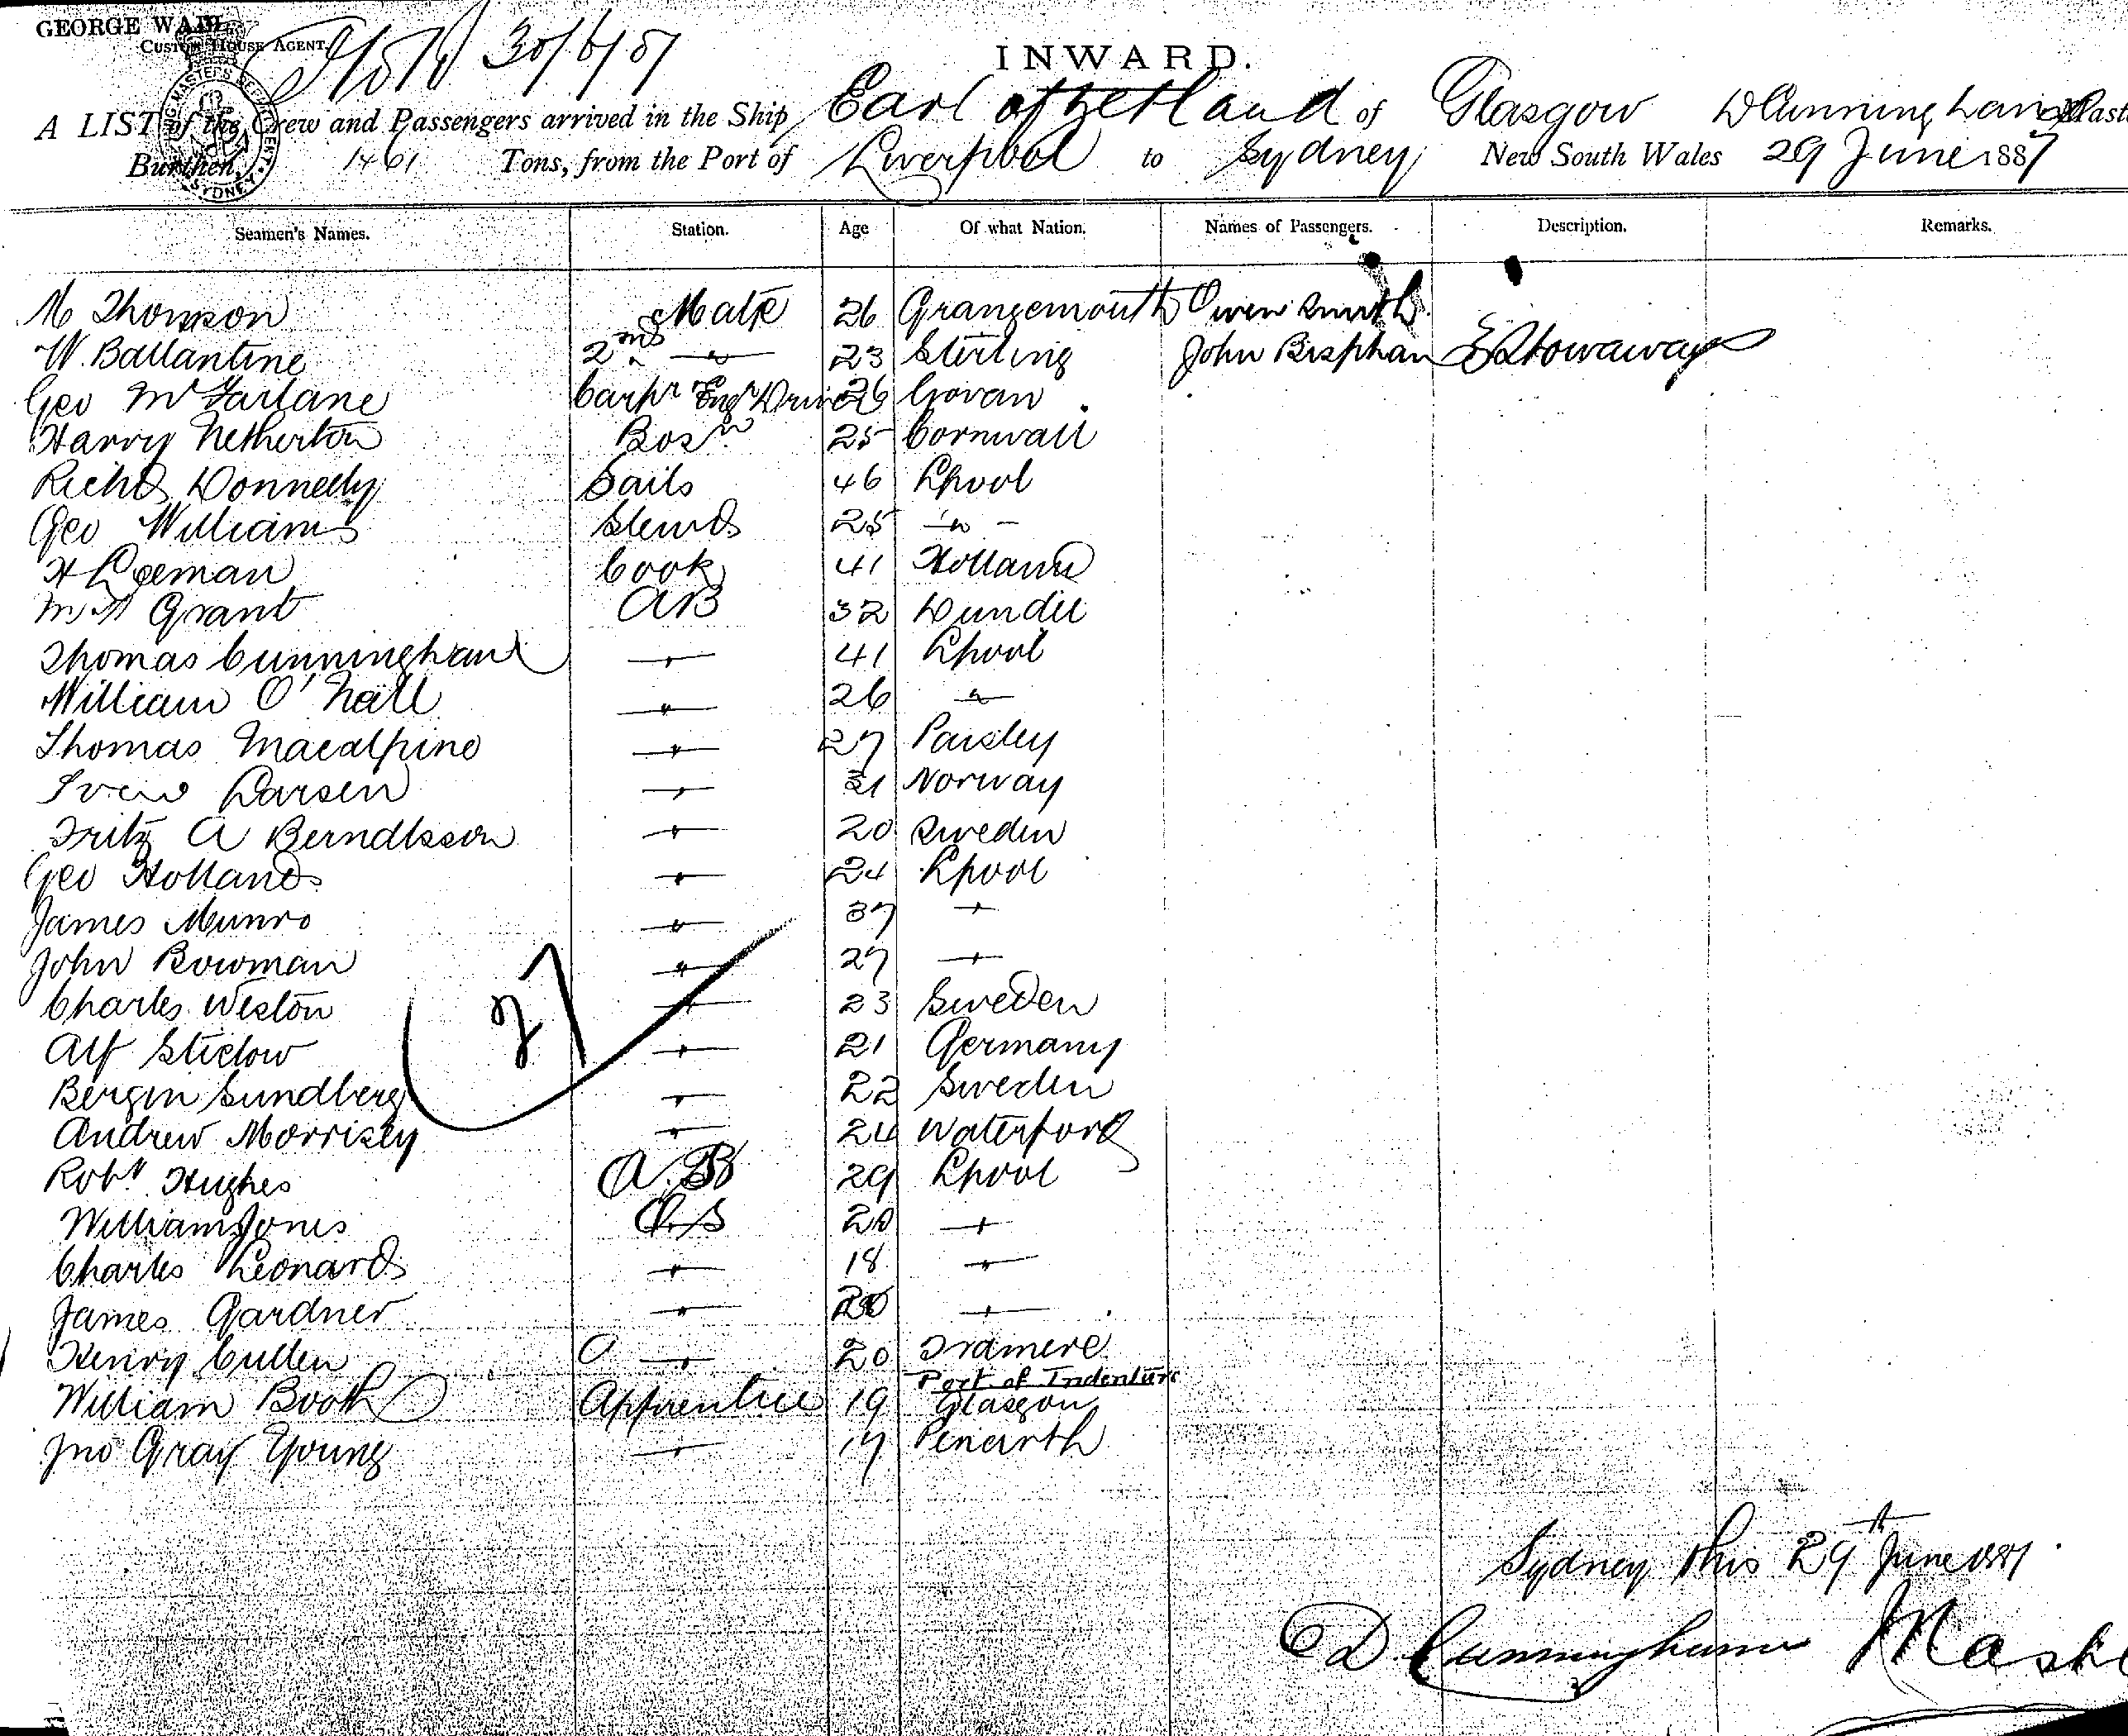 GEORGE WALL
CUSTOM HOUSE AGENT.
30/6/87
INWARD.
A LIST of the Crew and Passengers arrived in the Ship Earl of Zetland of Glasgow D Cunningham Mast
Burthen, 1461 Tons, from the Port of Liverpool to Sydney New South Wales 29 June 1887
Seamen's Names. Station. Age Of what Nation. Names of Passengers. Description. Remarks.
M Thomson Mate 26 Grangemouth Owen Smith
W. Ballantine 2nd " 23 Stirling John Bispham Stowaways
Geo McFarlane Carpr Engr Driver 26 Govan
Harry Netherton Bosn 25 Cornwall
Richd Donnelly Sails 46 Lpool
Geo Williams Stewd 25 "
H Loeman Cook 41 Holland
Grant AB 32 Dundee
Thomas Cunningham " 41 Lpool
William O'Neill " 26 "
Thomas Macalpine " 27 Paisley
Larsen " 31 Norway
Fritz A Berndtsson " 20 Sweden
Geo Holland " 24 Lpool
James Munro " 37 "
John Bowman " 27 "
Charles Weston " 23 Sweden
27
Alf Stielow " 21 Germany
Bergin Sundberg " 22 Sweden
Andrew Morrisey " 24 Waterford
Robt Hughes A.B 29 Lpool
William Jones O.S 20 "
Charles Leonard " 18 "
James Gardner " 20 "
Henry Cullen O " 20 Tranmere
Port of Indenture
William Booth Apprentice 19 Glasgow
Jno Gray Young " 17 Penarth
Sydney this 29th June 1887
D Cunningham Maste